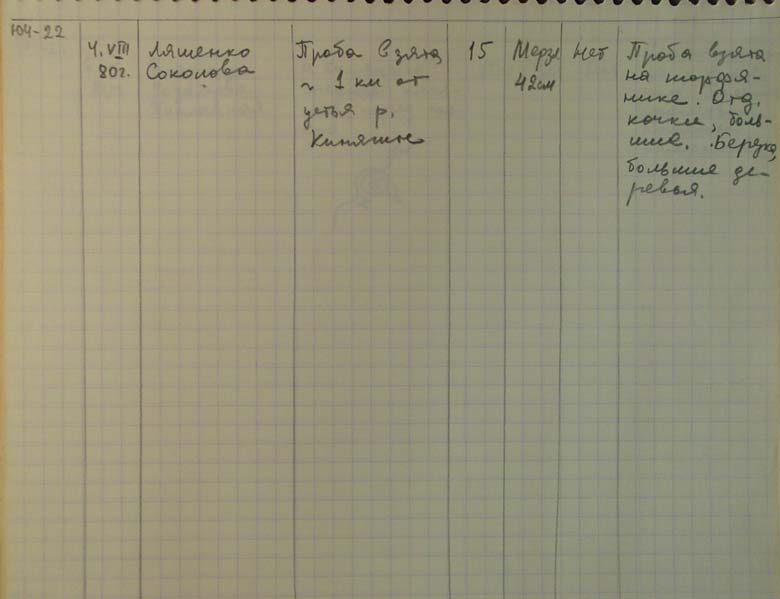 ЮЧ-22
4.VIII
80г.
Ляшенко
Соколова
Проба взята
~ 1 км от
устья р.
15
Мерзл
42см
Нет
Проба взята
на торфя-
нике. Отд.
кочки, боль-
шие. Березка,
большие де-
ревья.